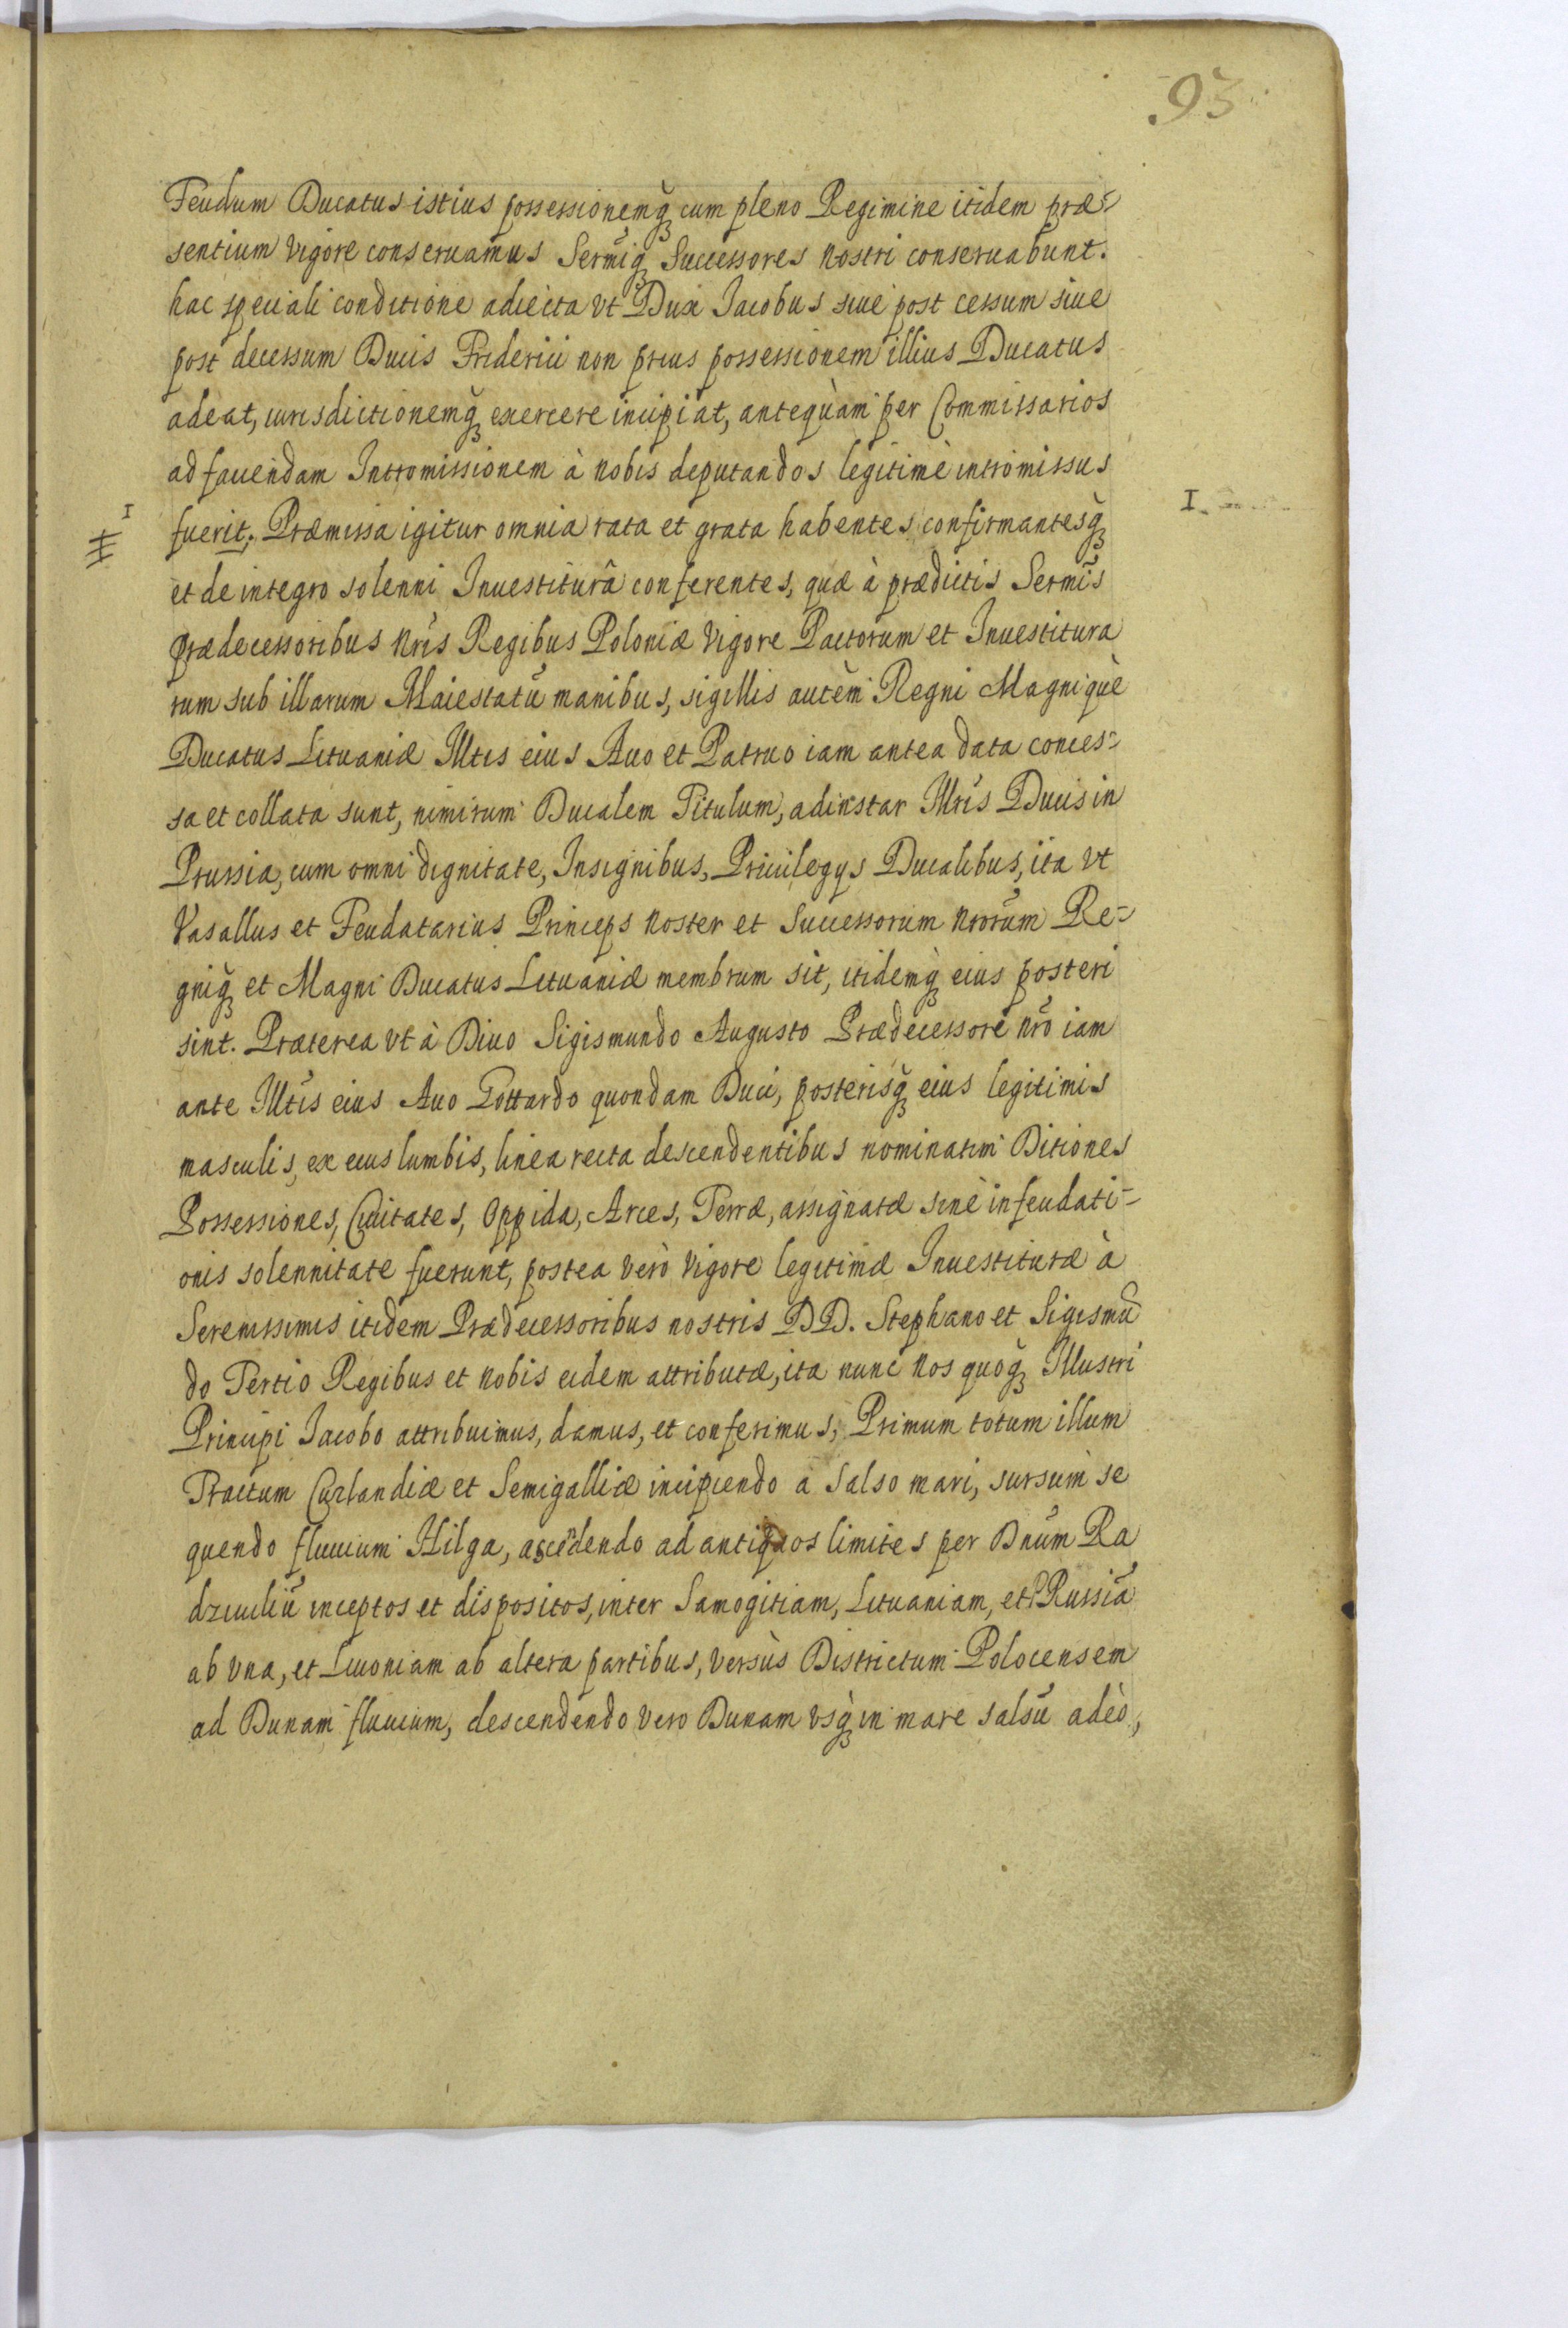 93
Feudum Ducatus istius possessionemq̃ cum pleno Regimine itidem præ=
sentium vigore conseruamus Sermiq̃ Successores Nostri conseruabunt.
hac speciali conditione adiecta vt Dux Iacobus siue post cessum siue
post decessum Ducis Friderici non prius possessionem illius Ducatus
adeat, iurisdictionemq̃ exercere incipiat, antequàm per Commissarios
ad faciendam Intromissionem à nobis deputandos legitimè intromissus
I
fuerit. Præmissa igitur omnia rata et grata habentes confirmantesq̃
I
et de integro solenni Inuestiturâ conferentes, quæ à prædictis Sermis
prædecessoribus Nris Regibus Poloniæ vigore Pactorum et Inuestitura
rum sub illarum Maiestatũ manibus, sigillis autèm Regni Magniquè
Ducatus Lituaniæ Illtis eius Auo et Patruo iam antea data conces=
sa et collata sunt, nimirum Ducalem Titulum, adinstar Illris Ducis in
Prussia, cum omni dignitate, Insignibus, Priuilegys Ducalibus, ita vt
Vasallus et Feudatarius Princeps Noster et Successorum Nrorum Re=
gniq̃ et Magni Ducatus Lituaniæ membrum sit, itidemq̃ eius posteri
sint. Præterea vt à Diuo Sigismundo Augusto Prædecessore Nro iam
ante Illtis eius Auo Gottardo quondam Duci, posterisq̃ eius legitimis
masculis, ex eius lumbis, linea recta descendentibus nominatim Ditiones
Possessiones, Ciuitates, Oppida, Arces, Terræ, assignatæ sinè infeudati=
onis solennitate fuerunt, postea verò vigore legitimæ Inuestituræ à
Serenissimis itidem Prædecessoribus nostris DD. Stephano et Sigismũ
do Tertio Regibus et Nobis eidem attributæ, ita nunc Nos quoq̃ Illustri
Principi Iacobo attribuimus, damus, et conferimus, Primum totum illum
Tractum Curlandiæ et Semigalliæ incipiendo a Salso mari, sursum se
quendo fluuium Hilga, ascẽdendo ad antiquos limites per Dnum Ra
dziuiliũ inceptos et dispositos, inter Samogitiam, Lituaniam, et Russiã
ab vna, et Liuoniam ab altera partibus, versùs Districtum Polocensem
ad Dunam fluuium, descendendo vero Dunam vsq̃ in mare salsũ adeò,